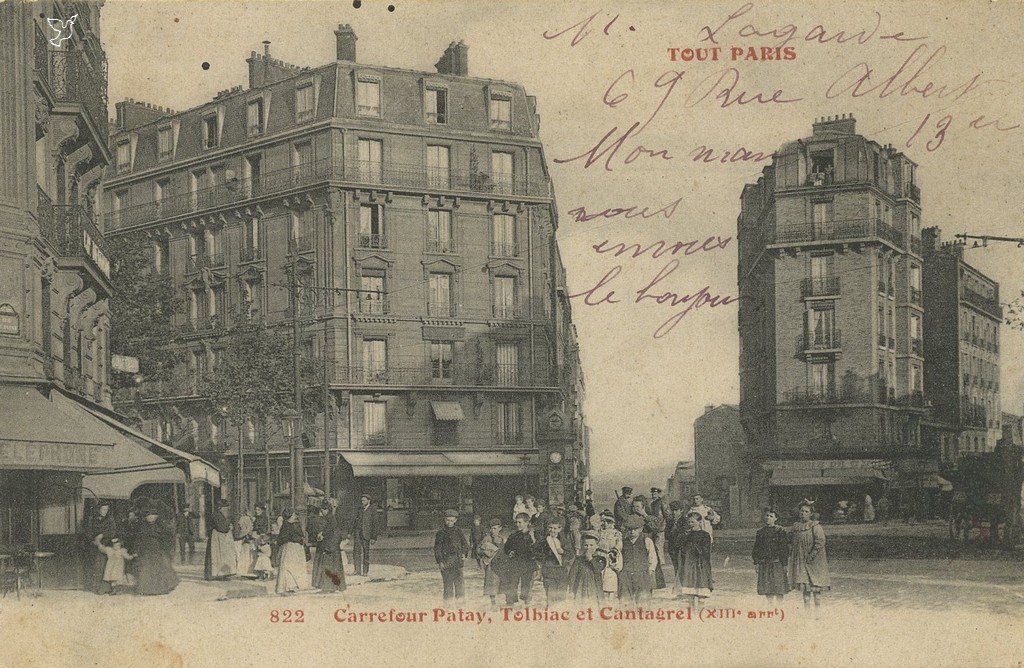 M. Lagarde
TOUT PARIS
69 Rue Albert
13 er
Mon mari
vous
envoies
le bonjour
822 Carrefour Patay, Tolbiac et Cantagrel (XIIIe arrt)